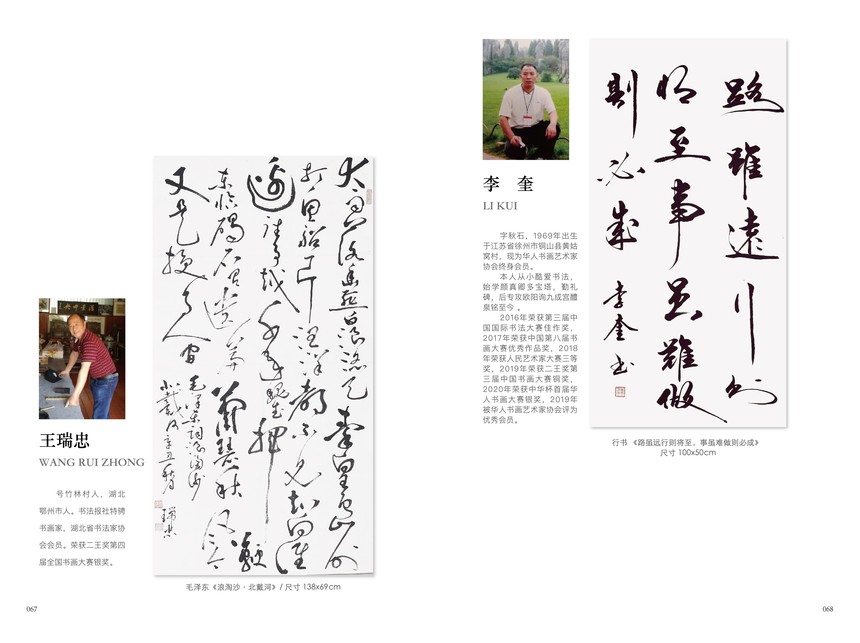 大雨落幽燕白浪滔天秦皇島外
打魚船一片汪洋都不見知向誰
邊往事越千年魏武揮鞭
東臨碣石有遺篇蕭瑟秋風今
又是換了人間
毛澤東詞浪淘沙
北戴河辛丑秋月
瑞忠
王瑞忠
WANG RUI ZHONG
号竹林村人，湖北
鄂州市人。书法报社特骋
书画家，湖北省书法家协
会会员。荣获二王奖第四
届全国书画大赛银奖。
毛泽东《浪淘沙·北戴河》/ 尺寸 138x69cm
067
李 奎
LI KUI
字秋石，1969年出生
于江苏省徐州市铜山县黄姑
窝村，现为华人书画艺术家
协会终身会员。
本人从小酷爱书法，
始学颜真卿多宝塔，勤礼
碑，后专攻欧阳询九成宫醴
泉铭至今 。
2016年荣获第三届中
国国际书法大赛佳作奖，
2017年荣获中国第八届书
画大赛优秀作品奖，2018
年荣获人民艺术家大赛三等
奖，2019年荣获二王奖第
三届中国书画大赛铜奖，
2020年荣获中华杯首届华
人书画大赛银奖，2019年
被华人书画艺术家协会评为
优秀会员。
路雖遠行則
将至事雖難做
則必成
李奎书
行书 《路虽远行则将至、事虽难做则必成》
尺寸 100x50cm
068